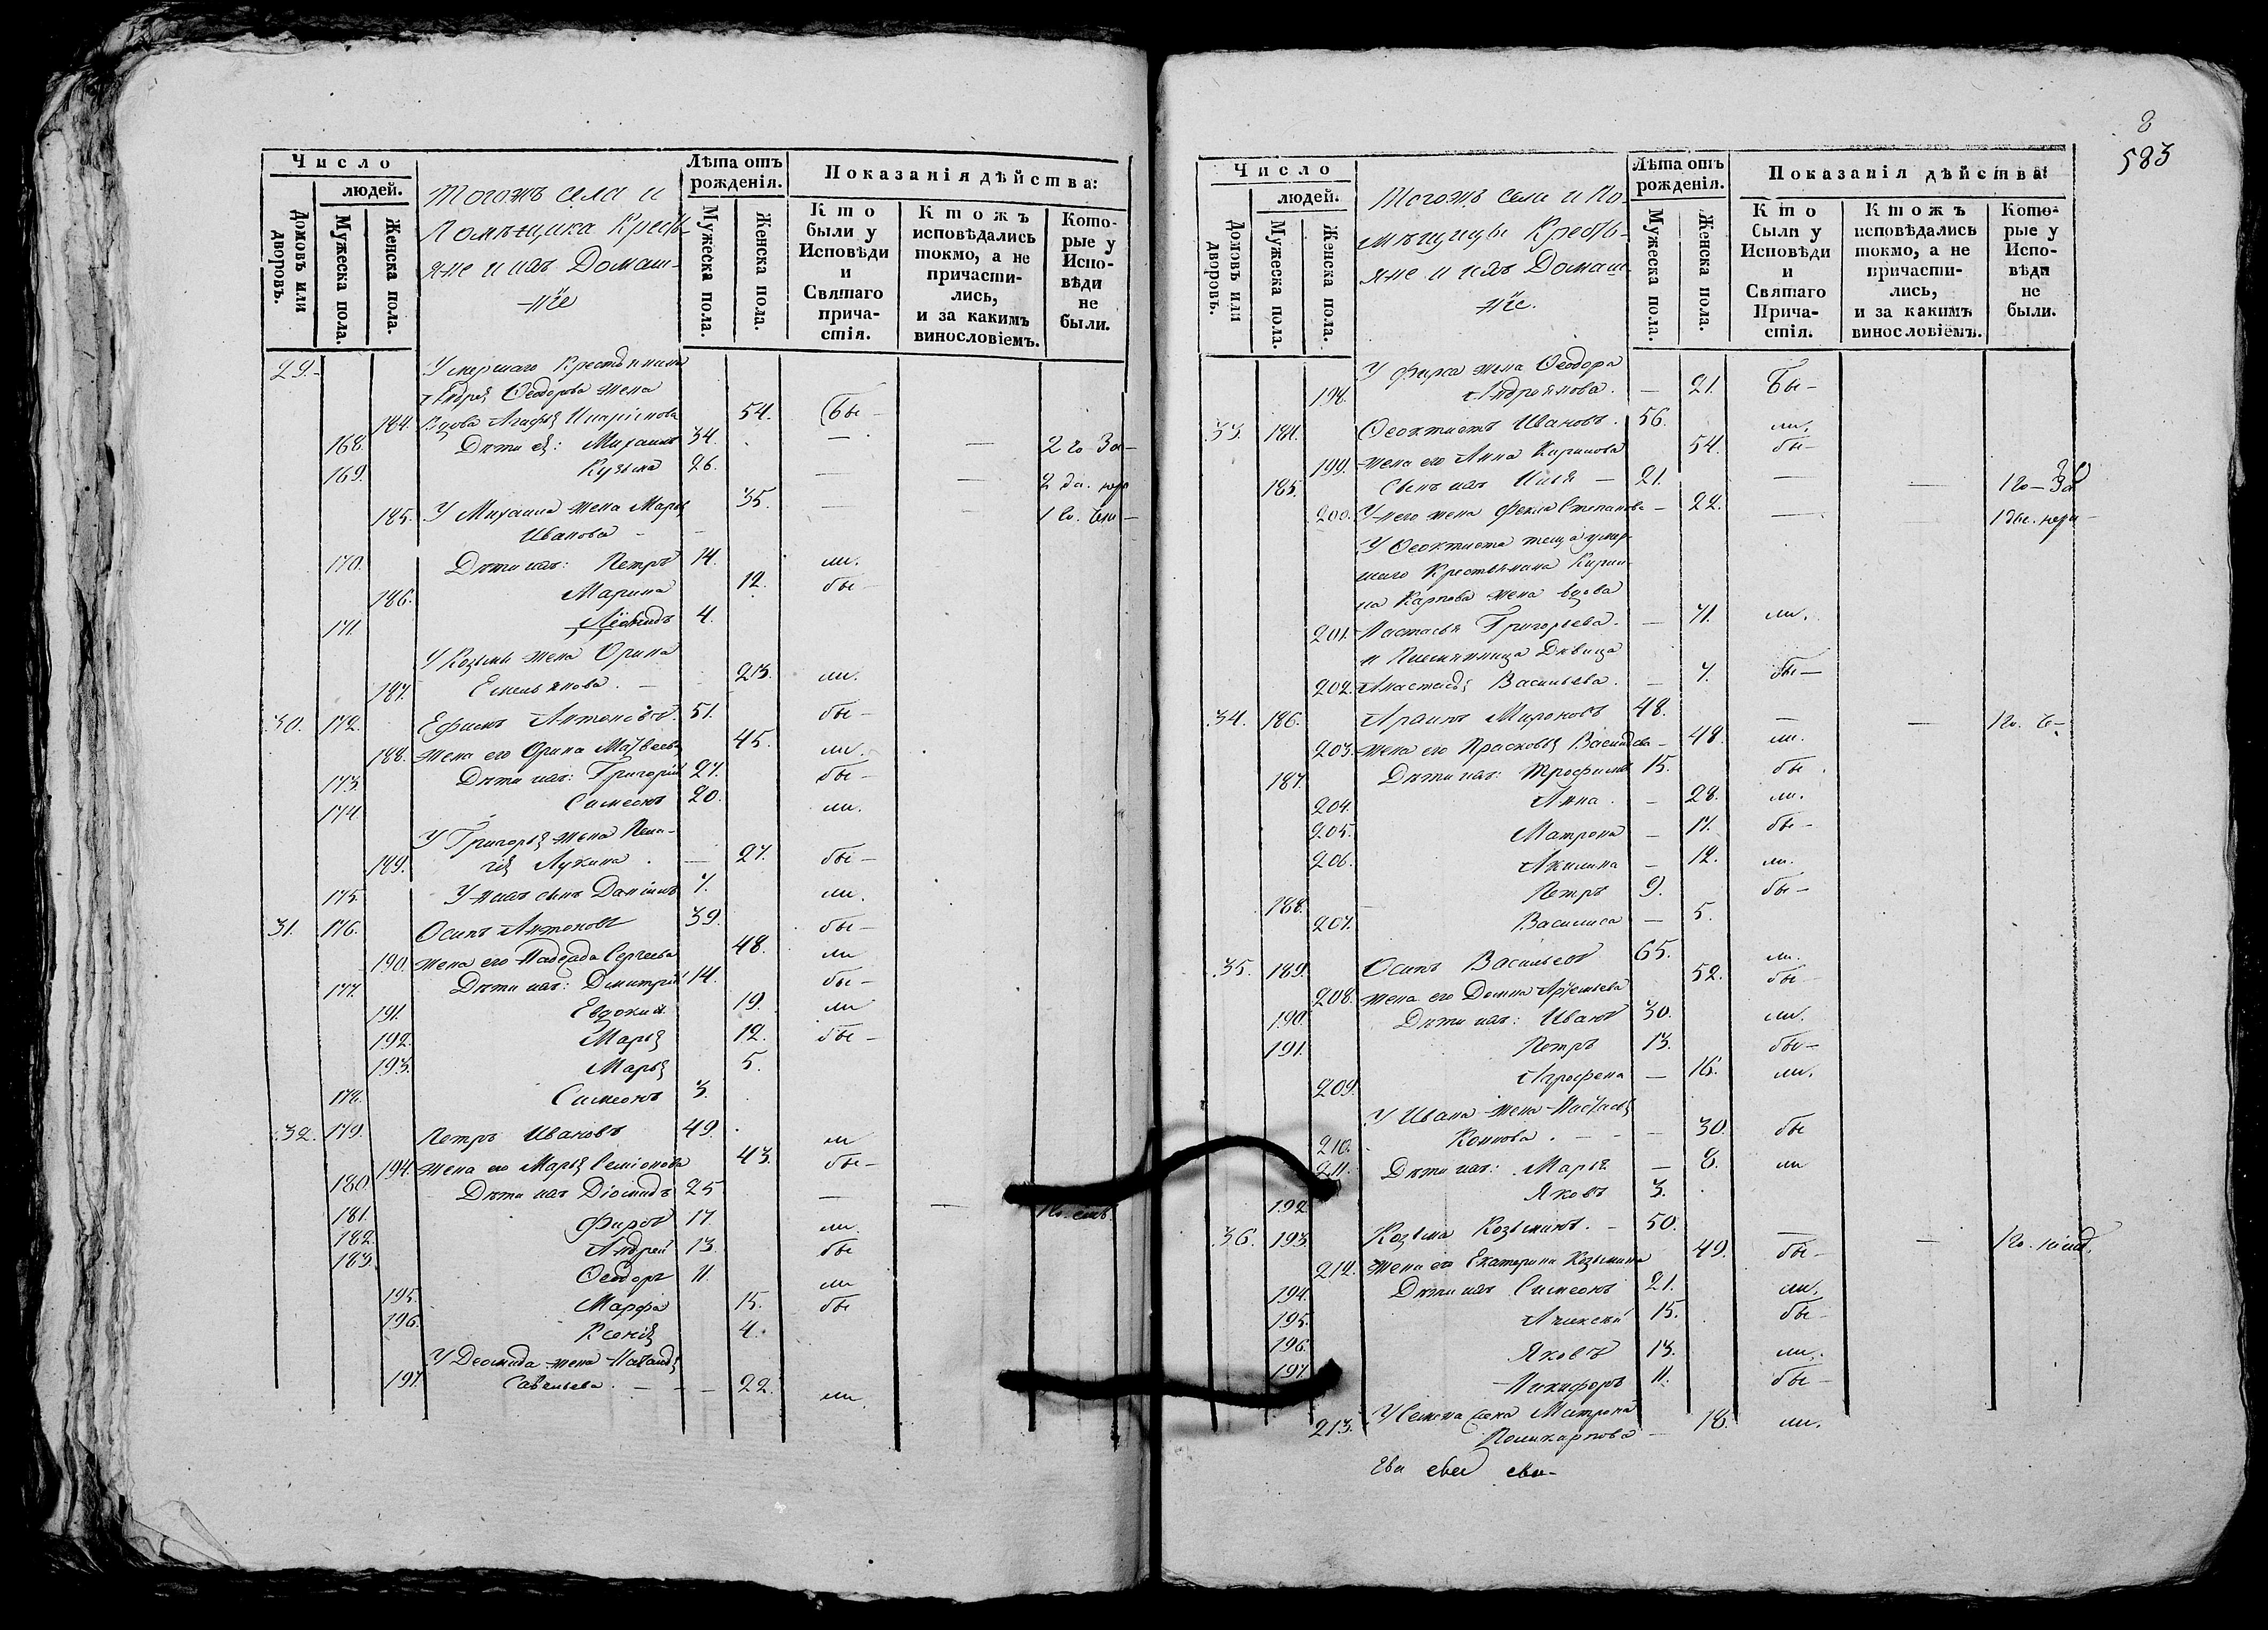 Число
людей.
Домовъ или дворовъ.
Мужеска пола.
Женска пола.
Тогожъ села и
Помѣщика Кресть-
яне и ихъ Домаш-
-нiе
Лѣта отъ рожденiя.
Мужеска пола.
Женска пола.
Показанiя дѣйства:
Кто были у Исповѣди и Святаго прича- стiя.
Ктожъ исповѣдались токмо, а не причасти- лись, и за какимъ винословiемъ.
Кото- рые у Испо- вѣди не были.
29. Умершаго Крестьянина
Андрея Ѳеодорова жена
184. Вдова Агафья 54. бы-
168. Дѣти ея: Михаилъ 34. — — 2 го За-
169. Кузьма 26. — — 2
185. У Михаила жена Марья 35. — — 1
Иванова -
170. Дѣти ихъ: Петръ 14. ли.
186. Марина 12. бы-
171. Леонидъ 4.
У Козьмы жена Орина
187. Емельянова. — 23. ли.
30. 172. Ефимъ Антоновъ. 51. бы-
188. жена его Орина Матвеева 45. ли.
173. Дѣти ихъ: Григорiй 27. бы-
174. Симеонъ 20. ли.
У Григорья жена Пела-
189. гiя Лукина. — 27. бы-
175. У нихъ сынъ Данiилъ 7. ли.
31. 176. Осипъ Антоновъ 39. бы-
190. жена его Надежда Сергеева 48. ли
177. Дѣти ихъ: Дмитрiй 14. бы-
191. Евдокия 19. ли
192. Марья 12. бы-
193. Марья 5.
178. Симеонъ 3.
32. 179. Петръ Ивановъ 49. ли
194. жена его Марья Семiонова 43. бы-
180. Дѣти ихъ Дiомидъ 25 — — 1 го.
181. Фирсъ 17. ли
182. Андрей 13. бы
183. Ѳеодоръ 11. ли
195. Марфа 15. бы
196. Ксенiя 4.
У Деомида жена Наталья
197. Савельева. — 22. ли.
8
583
Число
людей.
Домовъ или дворовъ.
Мужеска пола.
Женска пола.
Тогожъ села и По-
мѣщицы Кресть-
яне и ихъ Домаш-
-нiе.
Лѣта отъ рожденiя.
Мужеска пола.
Женска пола.
Показанiя дѣйства:
Кто были у Исповѣди и Святаго Прича- стiя.
Ктожъ исповѣдались токмо, а не причасти- лись, и за какимъ винословiемъ.
Кото- рые у Испо- вѣди не были.
У Фирса жена Ѳеодора
198. Андреянова. — 21. бы-
33. 184. Ѳеоктистъ Ивановъ. 56. ли.
199. жена его Анна Кирилова 54. бы-
185. Сынъ ихъ Илья — 21. — — 1 го - За
200. У него жена Фекла Степанова - 22. — — 1
У Ѳеоктиста теща умер-
шаго Крестьянина Кирил-
ла Карпова жена вдова
201. Настасья Григорьева. — 71. ли.
и Племянница Дѣвица
202. Анастасья Васильева. — 7. бы—
34. 186. Мироновъ 48. — — 1 го.
203. жена его Прасковья Васильева - 48. ли.
187. Дѣти ихъ: Трофимъ 15. бы
204. Анна. — 28. ли.
205. Матрона — 17. бы-
206. Акилина — 12. ли.
188. Петръ 9. бы-
207. Василиса — 5.
35. 189. Осипъ Васильевъ 65. ли.
208. жена его Домна Артемьева 52. бы-
190. Дѣти ихъ: Иванъ 30. ли.
191. Петръ 13. бы-
209. Агрофена — 16. ли.
У Ивана жена Настасья
210. Кононова. — 30. бы
211. Дѣти ихъ: Марья — 8. ли
192. Яковъ 3.
36. 193. Козьма Козьминъ. - 50. — — 1 го.
212. жена его Екатерина Козьмина 49. бы-
194. Дѣти ихъ Симеонъ 21. ли.
195. Алексѣй 15. бы-
196. Яковъ 13. ли.
197. Никифоръ 11. бы-
213. У Семена жена Матрона 18. ли.
Поликарпова